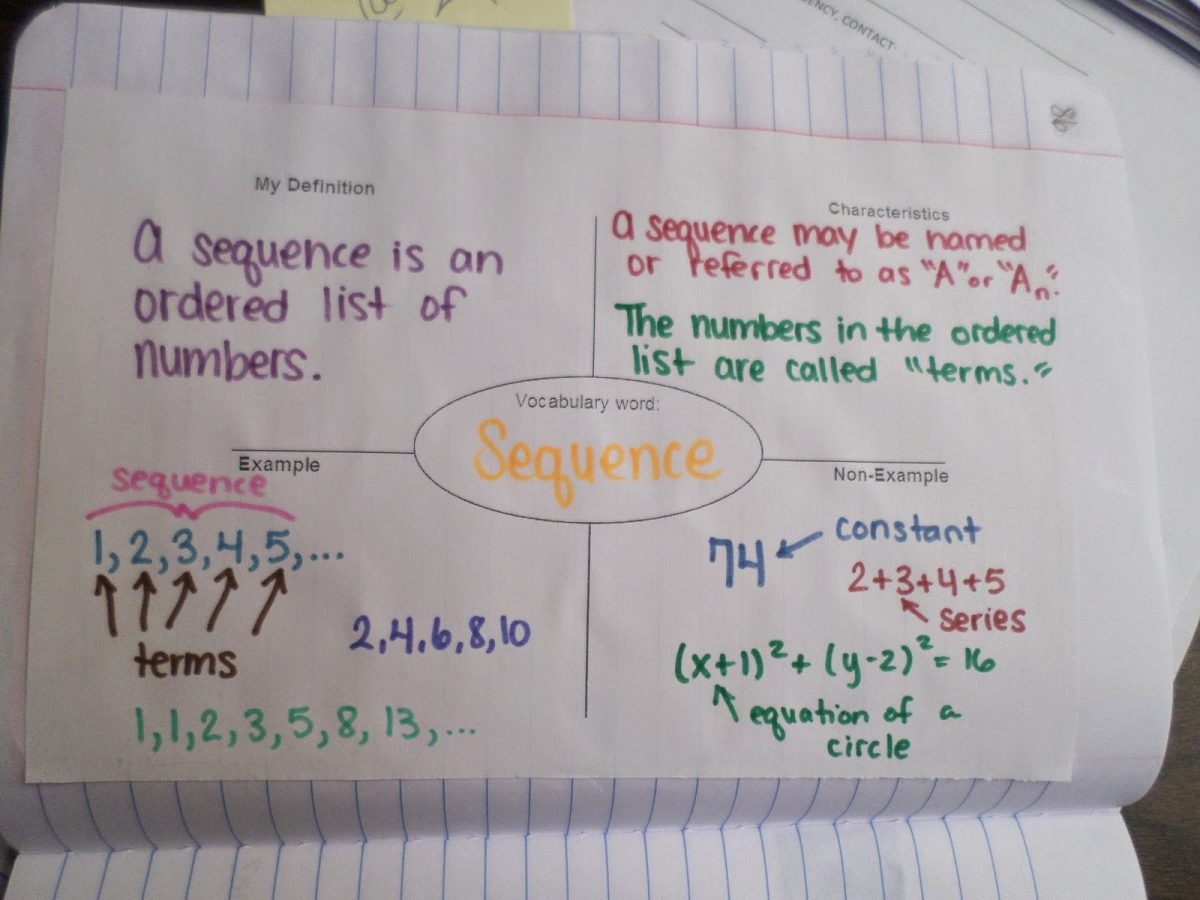 ENCY, CONTACT
My Definition
A sequence is an
ordered list of
numbers.
Characteristics
A sequence may be named
or referred to as "A" or "Aₙ."
The numbers in the ordered
list are called "terms."
Vocabulary word:
Sequence
Example
sequence
1, 2, 3, 4, 5, ...
terms
2, 4, 6, 8, 10
1, 1, 2, 3, 5, 8, 13, ...
Non-Example
74
constant
2+3+4+5
series
(x+1)² + (y-2)² = 16
equation of a
circle